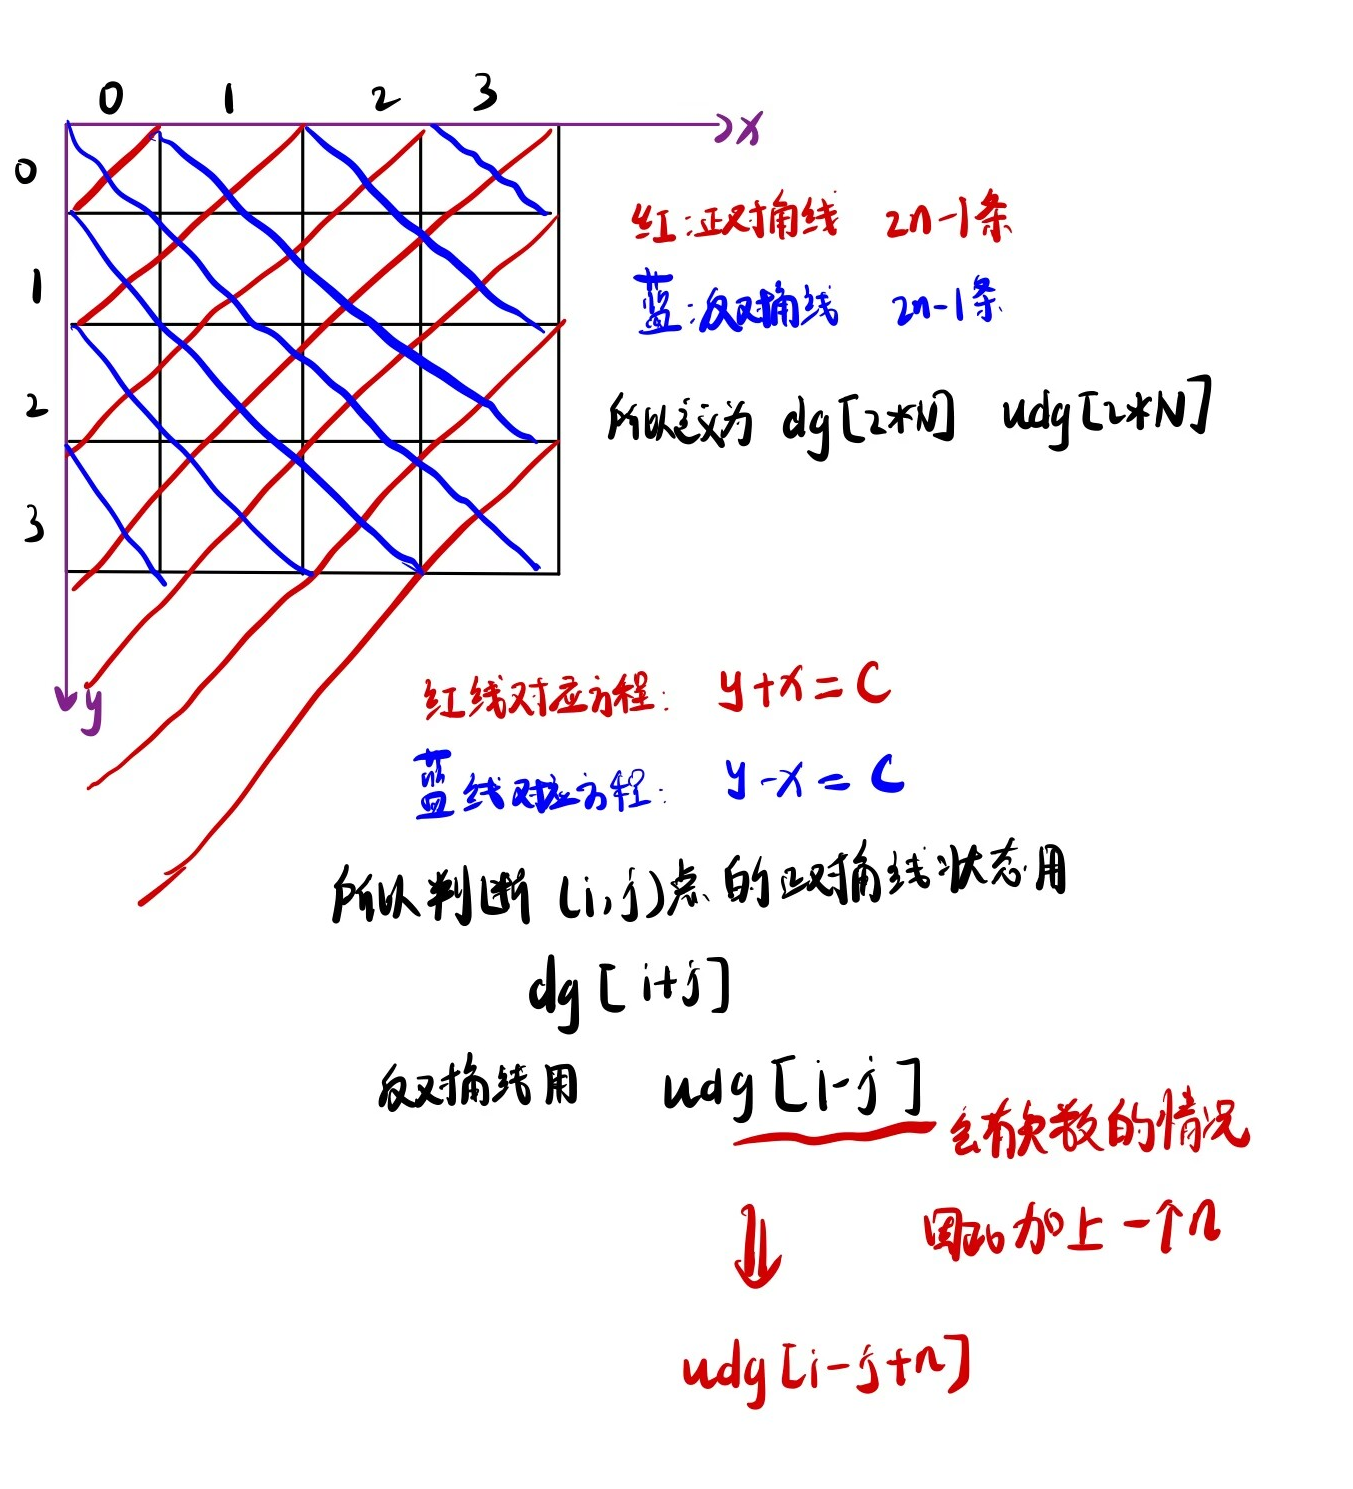 0 1 2 3
x
0
1
2
3
y
红:正对角线 2n-1条
蓝:反对角线 2n-1条
所以定义为 dg[2*N] udg[2*N]
红线对应方程: y+x=C
蓝线对应方程: y-x=C
所以判断(i,j)点的正对角线状态用
dg[i+j]
反对角线用 udg[i-j]
会有负数的情况
因此加上一个n
udg[i-j+n]